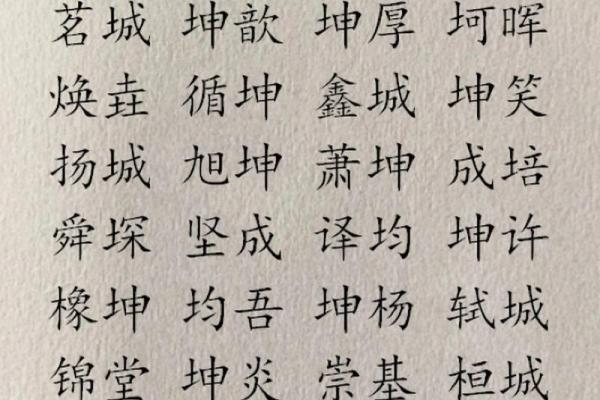 茗城 坤歆 坤厚 坷晖
焕垚 循坤 鑫城 坤笑
扬城 旭坤 萧坤 成培
舜堔 坚成 译均 坤许
橡坤 均吾 坤杨 轼城
锦堂 坤炎 崇基 桓城